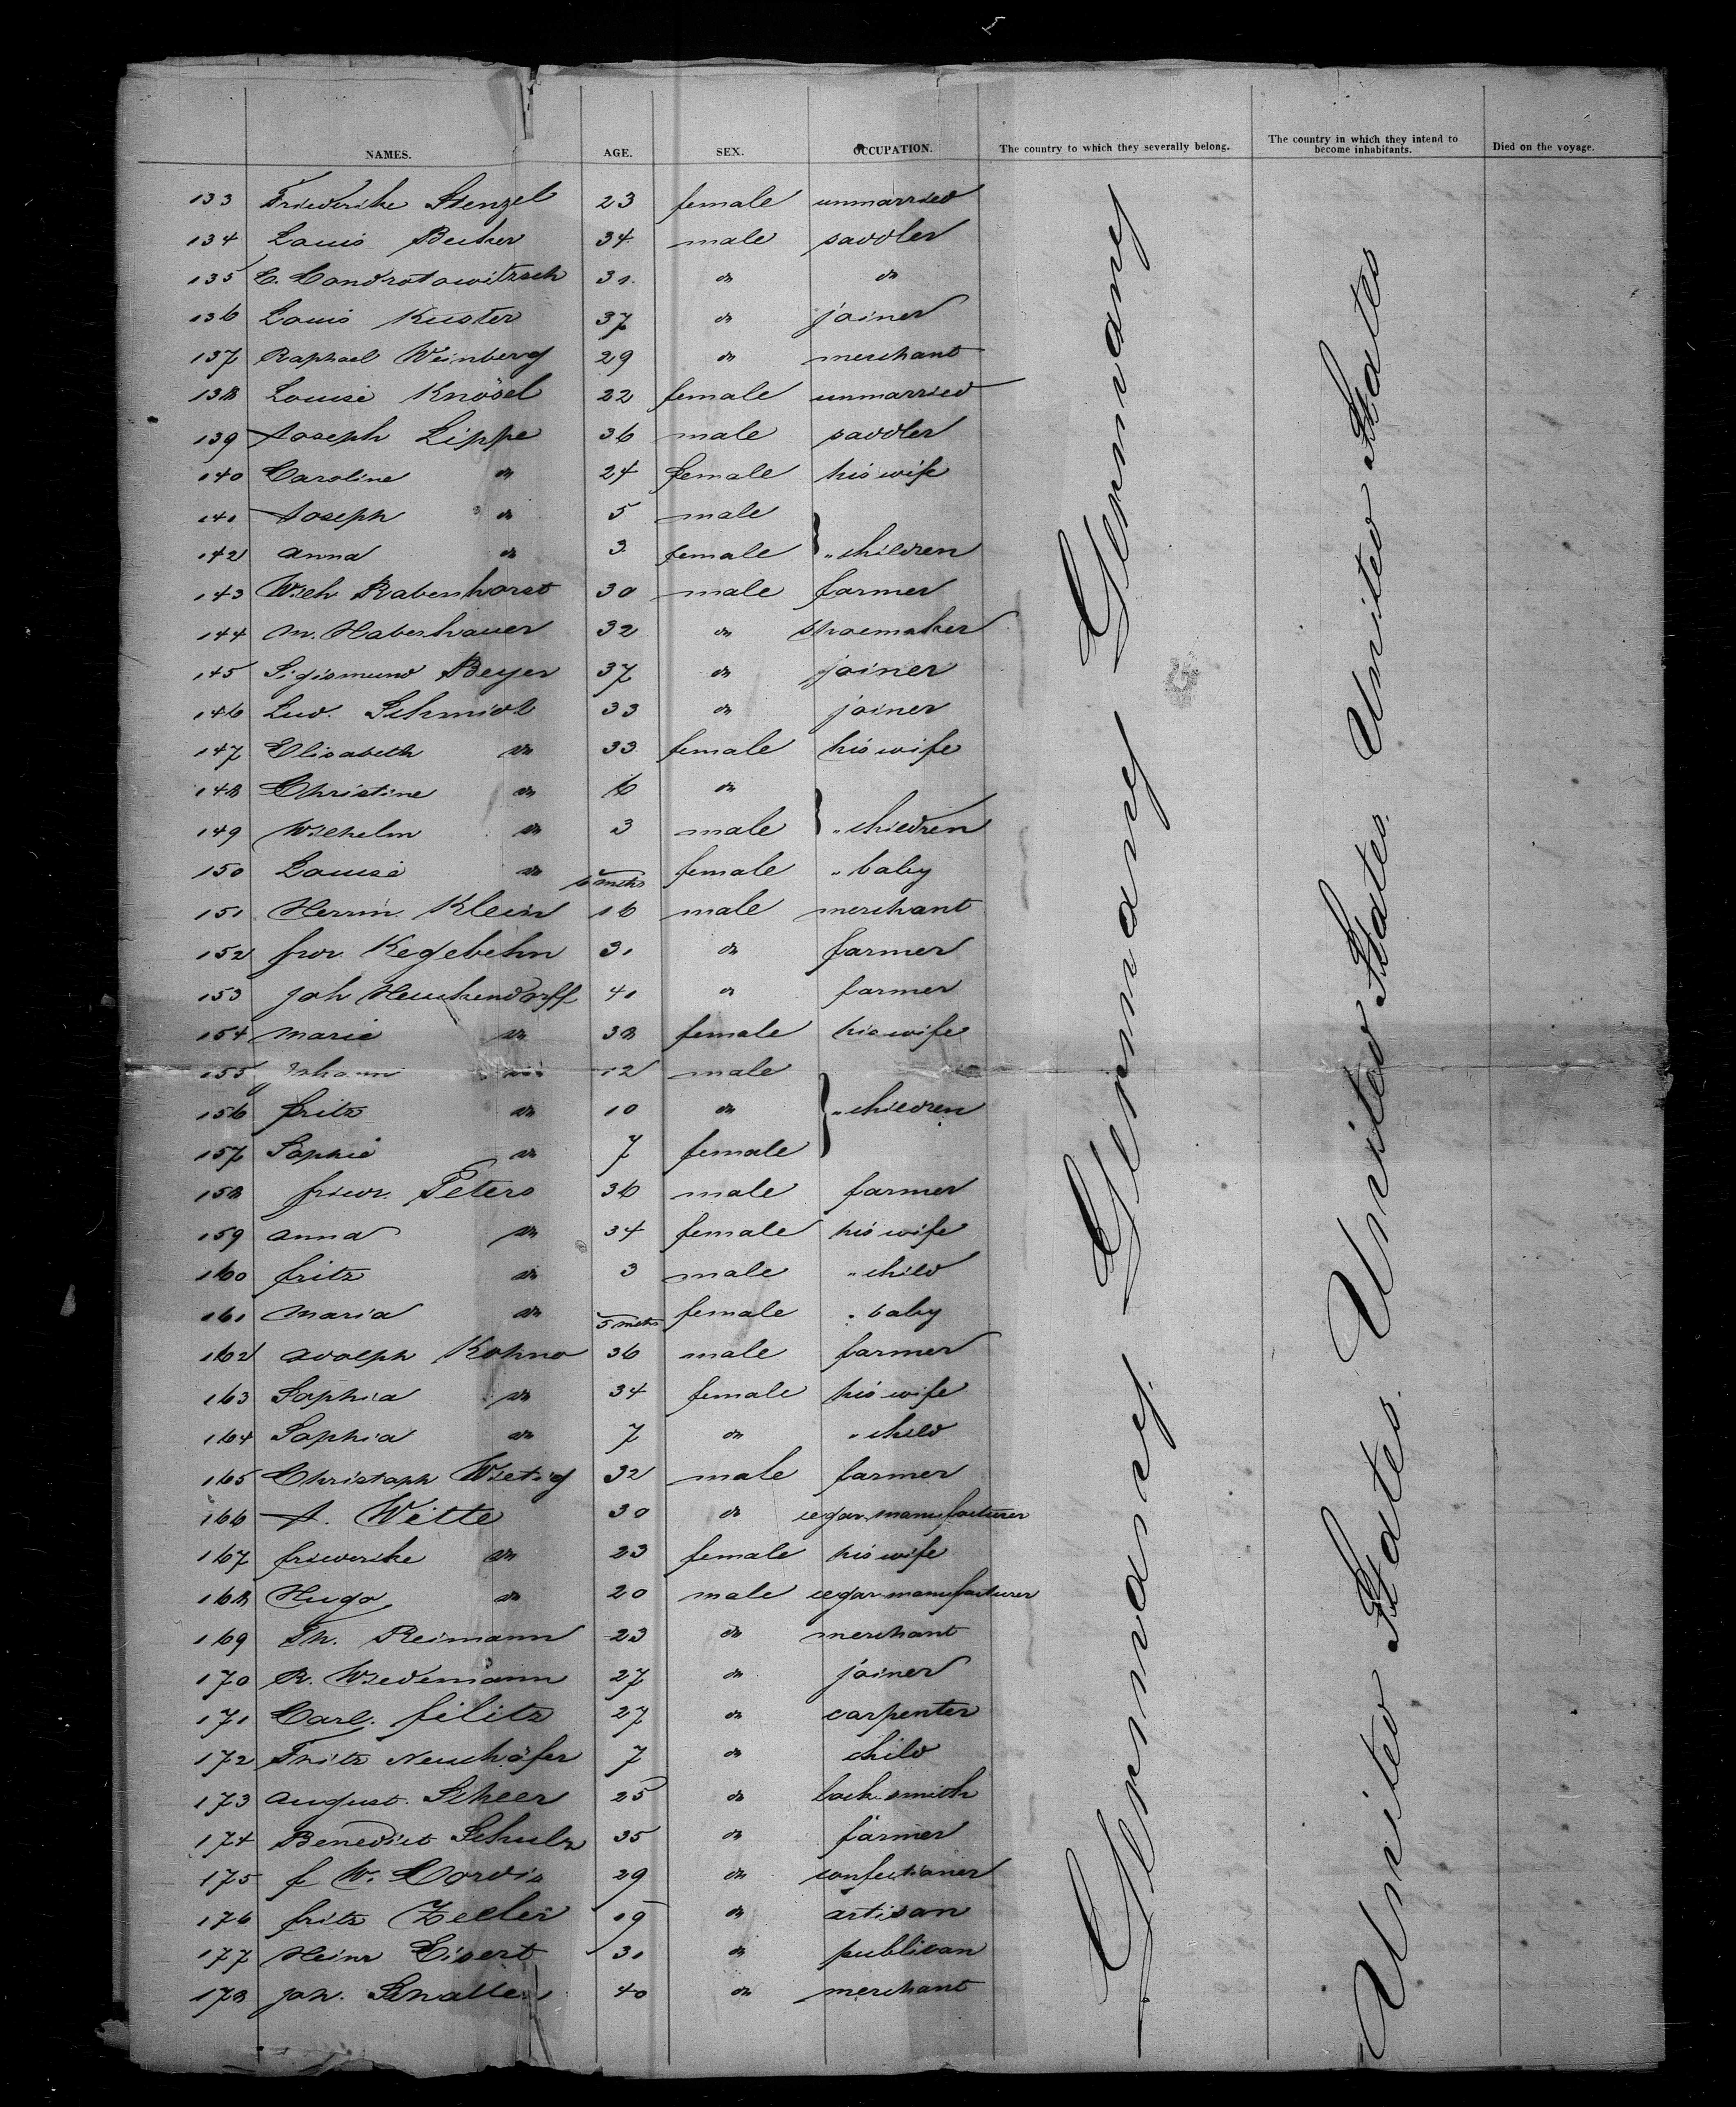 NAMES. AGE. SEX. OCCUPATION. The country to which they severally belong. The country in which they intend to become inhabitants. Died on the voyage.
133 Friederike Stenzel 23 female unmarried
134 Louis Becker 34 male saddler
135 C. Condrotowitzsch 31. do do
136 Louis Kuster 37 do joiner
137 Raphael Weinberg 29 do merchant
138 Louise Knösel 22 female unmarried
139 Joseph Lippe 36 male saddler
140 Caroline do 24 female his wife
141 Joseph do 5 male
142 Anna do 3 female } " children
143 Wilh Rabenhorst 30 male farmer
144 M. Haberhauer 32 do shoemaker
145 Sigismund Beyer 37 do joiner
146 Lud. Schmidt 33 do joiner
147 Elisabeth do 33 female his wife
148 Christine do 6 do
149 Wilhelm do 3 male } " children
150 Louise do 6 mths female " baby
151 Herm. Klein 16 male merchant
152 frdr Kegebehn 31 do farmer
153 Joh Heuckendorff 41 do farmer
154 Marie do 38 female his wife
155 Johann do 12 male
156 fritz do 10 do } " children
157 Sophie do 7 female
158 friedr. Peters 36 male farmer
159 Anna do 34 female his wife
160 fritz do 3 male " child
161 Maria do 5 mths female " baby
162 Adolph Kohno 36 male farmer
163 Sophia do 34 female his wife
164 Sophia do 7 do " child
165 Christoph Wietig 32 male farmer
166 A. Witte 30 do cegar manufacturer
167 friederike do 23 female his wife
168 Hugo do 20 male cegar manufacturer
169 Th. Reimann 23 do merchant
170 R. Wiedemann 27 do joiner
171 Carl. filitz 27 do carpenter
172 Fritz Neuschäfer 7 do child
173 August. Scheer 25 do lock smith
174 Benedict Schulz 35 do farmer
175 f W. Cordis 29 do confectioner
176 fritz Zeller 19 do artisan
177 Heinr Eisert 31 do publican
178 Joh. Schaller 40 do merchant
Germany. Germany Germany
United States. United States. United States